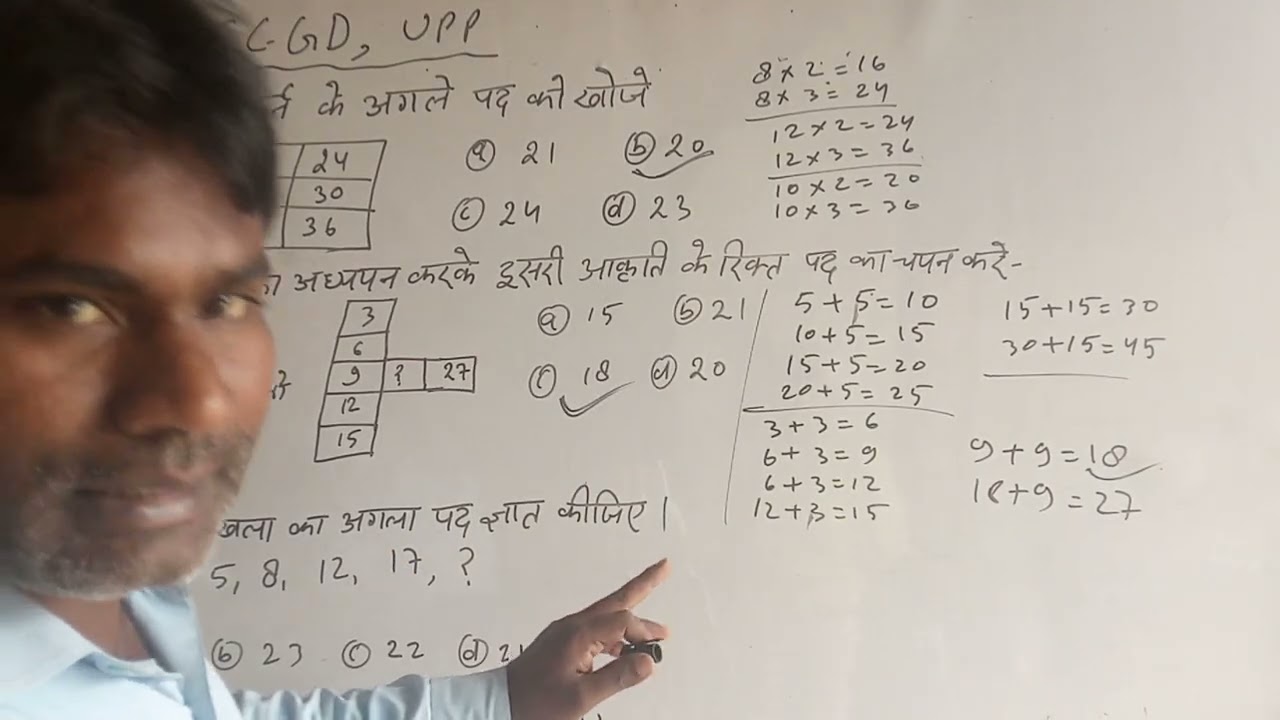 C-GD, UPP
के अगले पद को खोजे
24
30
36
(a) 21 (b) 20
(c) 24 (d) 23
8 × 2 = 16
8 × 3 = 24
12 × 2 = 24
12 × 3 = 36
10 × 2 = 20
10 × 3 = 30
अध्यपन करके इसरी आकृति के रिक्त पद का चपन करे-
3
6
9 ? 27
12
15
(a) 15 (b) 21
(c) 18 (d) 20
5 + 5 = 10
10 + 5 = 15
15 + 5 = 20
20 + 5 = 25
3 + 3 = 6
6 + 3 = 9
6 + 3 = 12
12 + 3 = 15
15 + 15 = 30
30 + 15 = 45
9 + 9 = 18
18 + 9 = 27
का अगला पद ज्ञात कीजिए।
5, 8, 12, 17, ?
(b) 23 (c) 22 (d)